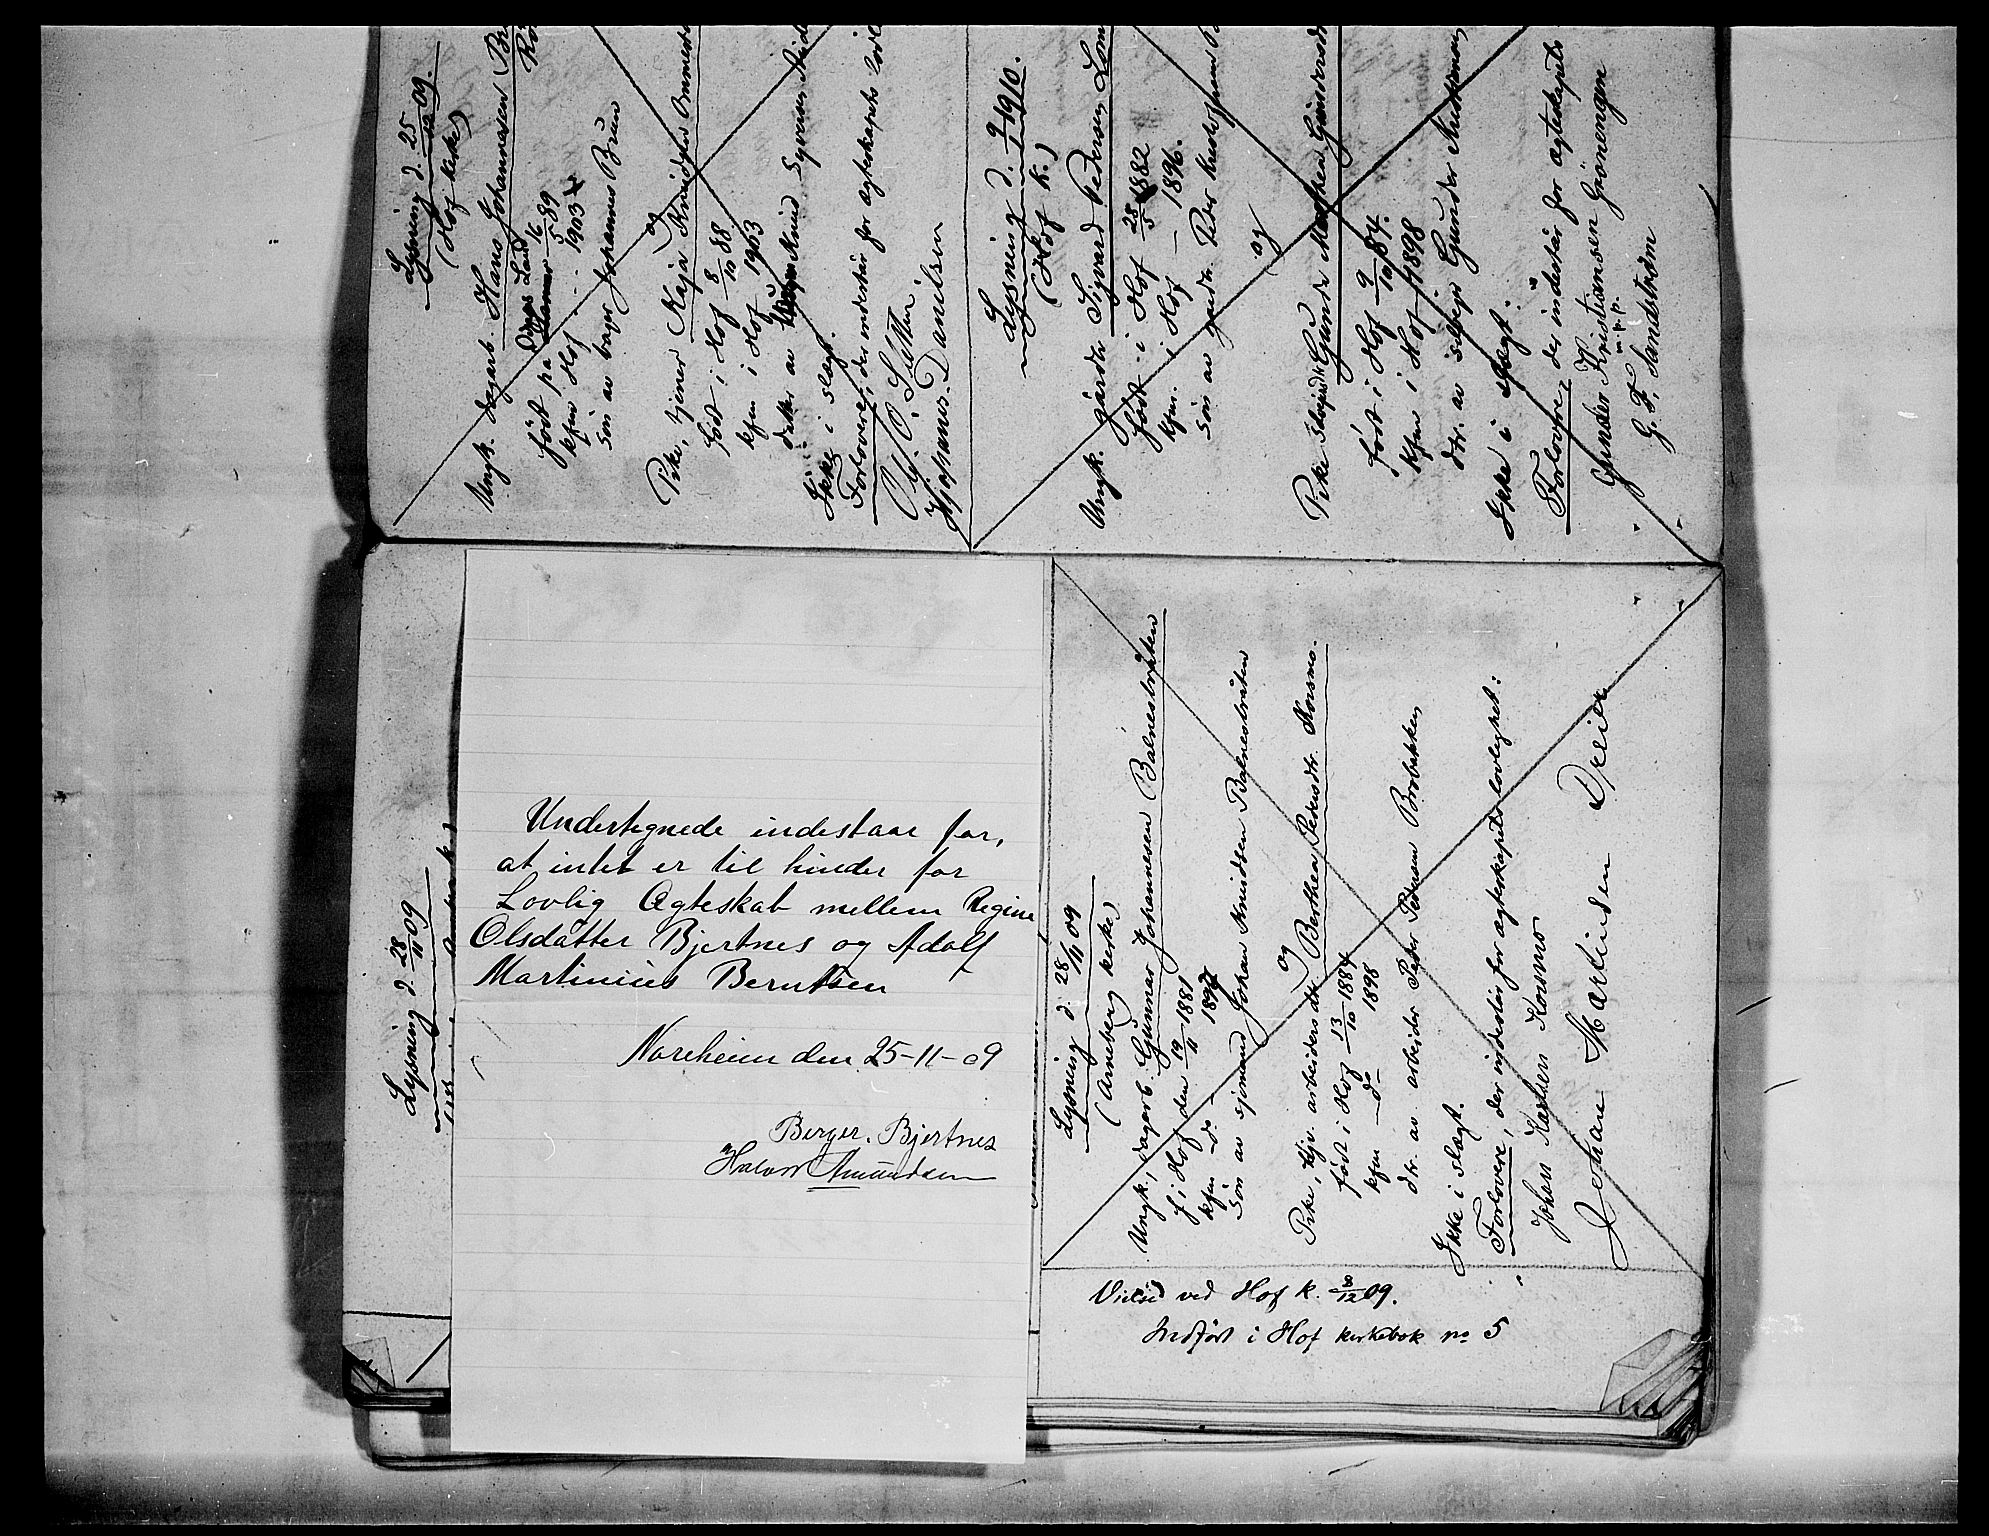 Lysning d. 25/12 09.
(Hof kirke)
Ungk. dagarb. Hans Johannesen
født på Land 16/5 89
kfm Hof 1903
søn av bager Johannes Bruun
og
Pike, tjener Kaja Knudsdtr
født i Hof 8/10 88
kfm i Hof 1903
datter av Knud Syversen
Ikke i slægt.
Forlovere, der indestår for ægteskapets
Ole O. Sæther
Hjohanis. Danielsen
Lysning d. 9/1 1910.
(Hof k.)
Ungk. gårdbr Sigvard Pedersen
født i Hof 28/5 1882
kfm. i Hof – 1896.
søn av gårdbr. Peder
og
Pike Gunda
født i Hof 9/10 84.
kfm i Hof 1898
dtr. av selveier Gunder
Ikke i slægt.
Forlovere, der indestår for ægteskapets
Gunder Kristiansen Grönengen
m.p.p.
G. F. Sandström
Lysning d. 28/11 09
Undertegnede indestaar for,
at intet er til hinder for
Lovlig Ægteskab mellem Regine
Olsdatter Bjertnes og Adolf
Martinius Berntsen
Noreheim den 25-11-09
Berger. Bjertnes
Halvor Amundsen
Lysning d. 28/11 09
(Arneberg kirke)
Ungk., dagarb. Gunnar Johannesen Balnestråten
f. i Hof den 19/11 1881
kfm do 1897
søn av sjømand Johan Knudsen Balnestråten
og
Pike, hjv. arbeidersdtr. Berthea Pedersdtr. Kovsmo.
født i Hof 13/10 1884
kfm do 1898
dtr. av arbeider Peder Pedersen Brobakken
Ikke i slægt.
Forlovere, der indestår for ægteskapets lovlighet:
Johan Karlsen Kovsmo
Johan Martinsen Dreier
Vielse ved Hof k. 8/12 09.
Indført i Hof kirkebok no 5